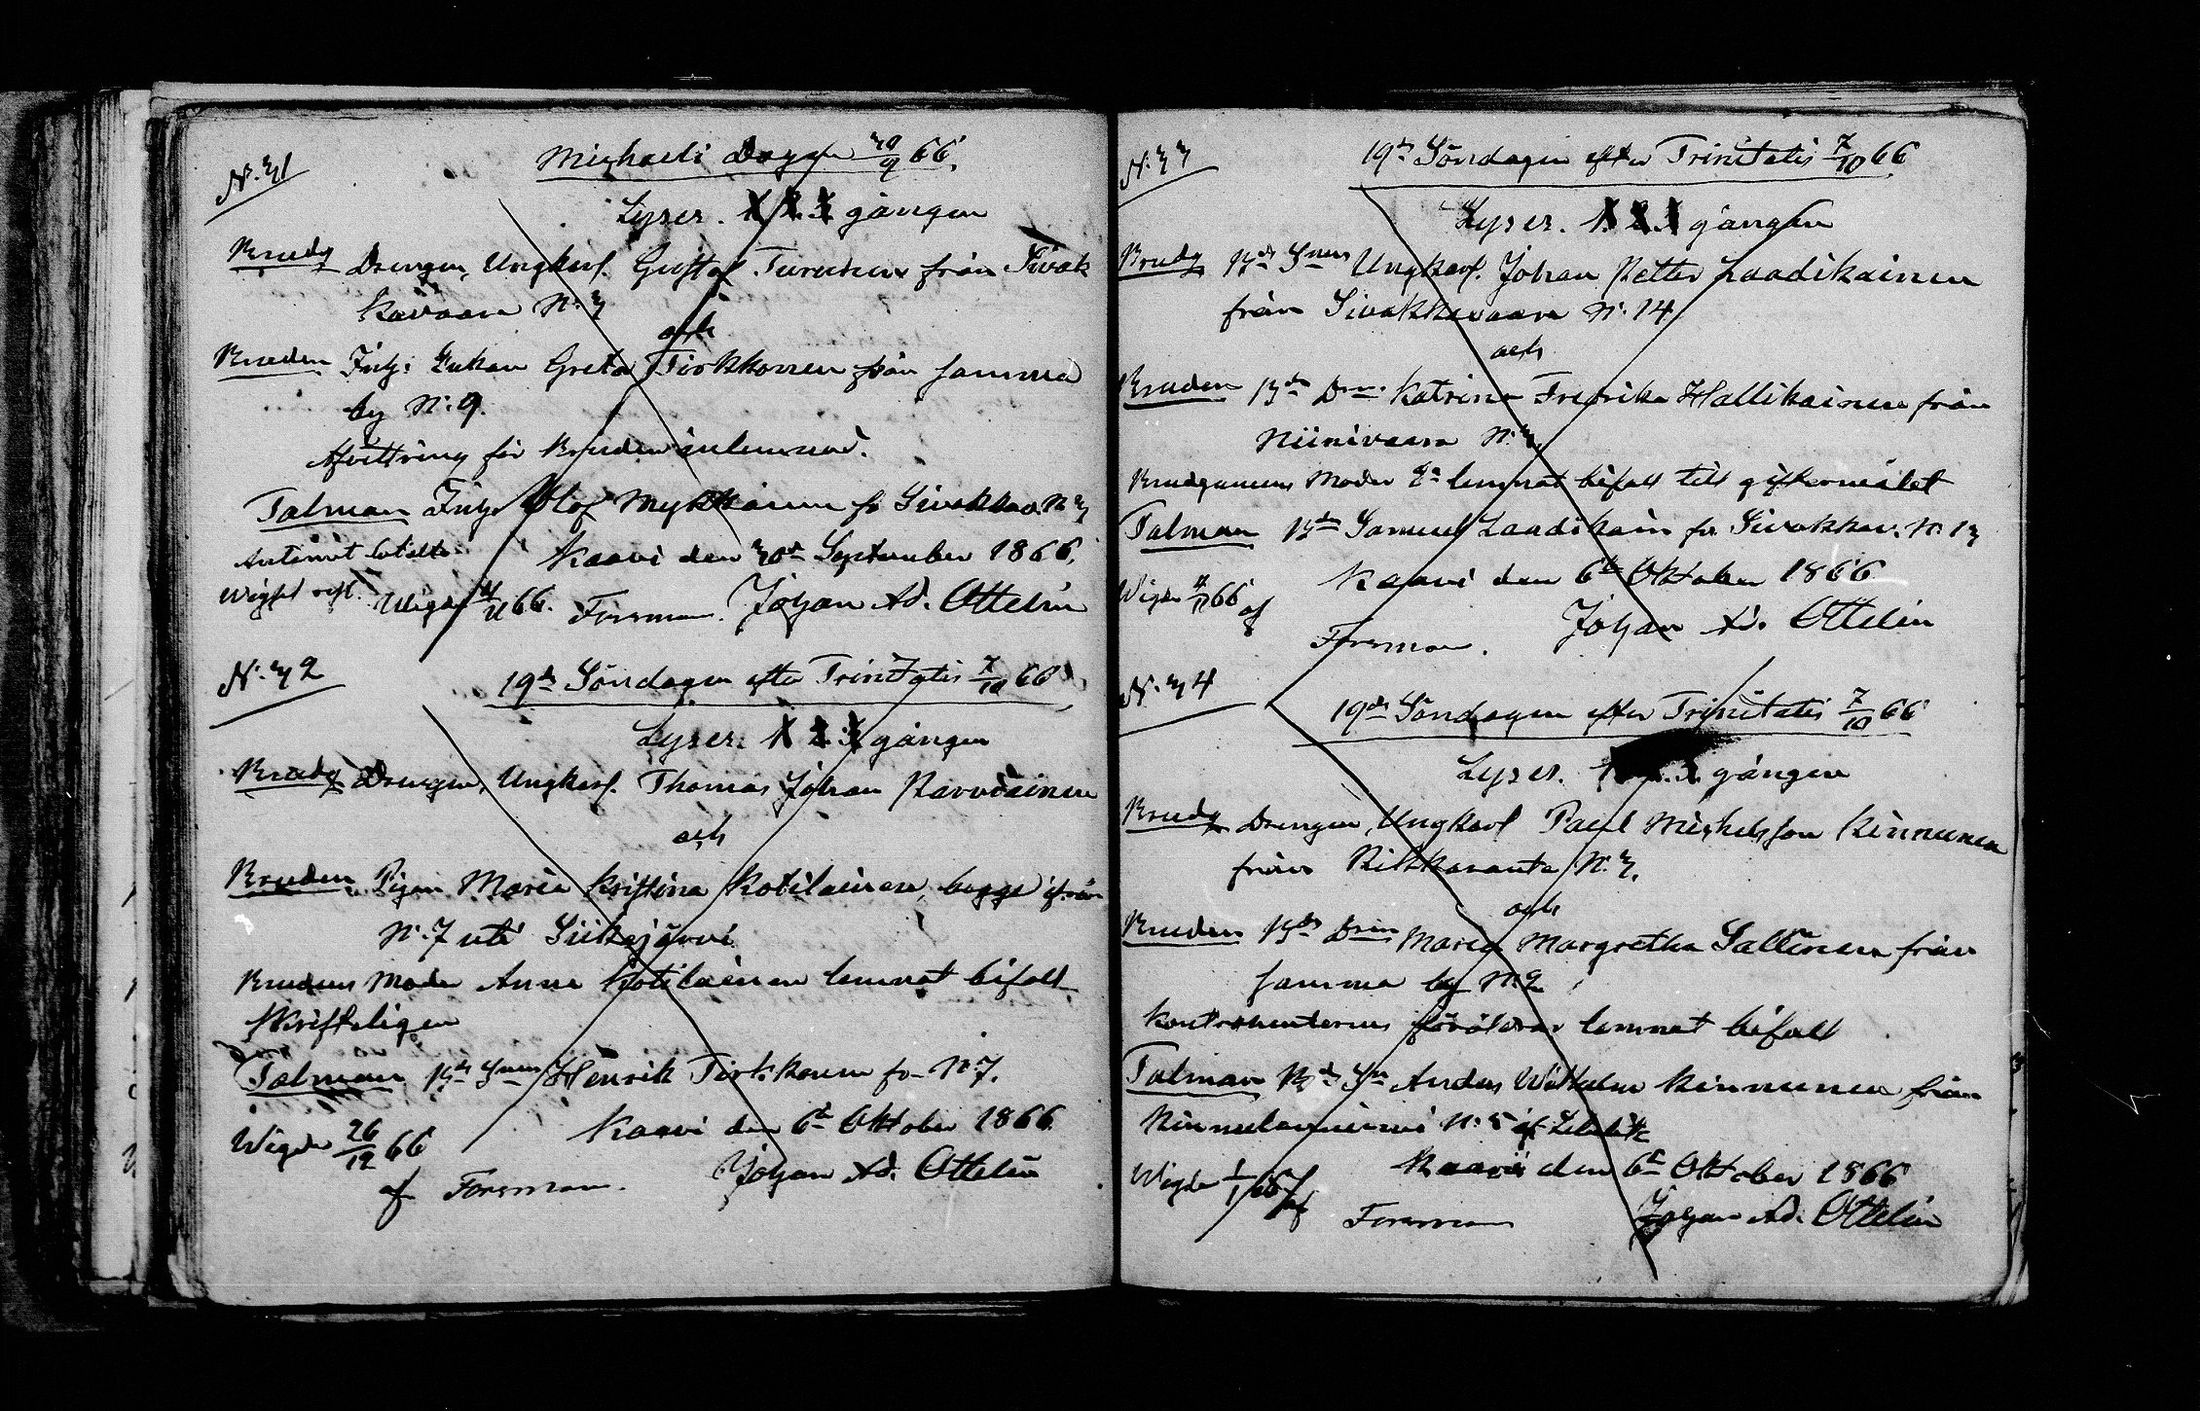 N:31
Michaeli Dagen 30/9 66.
Lyser. 1. 2. 3 gången
Brudg Drengen, Ungkarl. Gustaf Turunen från Sivak
kavaara N:3
och
Bruden Inh: Enkan Greta Tirkkonen från samma
by N:9.
Afvittring för Bruden inlemnad.
Talman Inh: Olof Mykkänen fr Sivakkav. N:3
Kaavi den 30de September 1866.
Wigde 66. Forsman. Johan Ad. Ottelin
N:32
19de Söndagen efter Trinitatis 7/10 66
Lyser. 1 2 3 gången
Brudg Drengen, Ungkarl. Thomas Johan Parviainen
och
Bruden Pigan Maria Kristina Kotilainen, begge ifrån
N:7 uti Siikajärvi
Brudens Moder Anna Kotilainen lemnat bifall
skrifteligen
Talman Bde Snen Henrik Tirkkonen fr N:7.
Kaavi den 6te Oktober 1866
Wigde 26/12 66
af Forsman. Johan Ad. Ottelin
N:33
19de Söndagen efter Trinitatis 7/10 66
Lyser. 1. 2. 3 gången
Brudg Bde Snen Ungkarl. Johan Petter Laadikainen
från Sivakkavaara N:14
och
Bruden Bde Drn Katrina Fredrika Hallikainen från
Niinivaara N:3
Brudgummens Moder lemnat bifall till giftermålet
Talman Bde Samuel Laadikain fr Sivakkav. N:13
Kaavi den 6te Oktober 1866
Wigde 66 af
Forsman. Johan Ad. Ottelin
N:34
19de Söndagen efter Trinitatis 7/10 66
Lyser. gången
Brudg Drengen, Ungkarl Paul Michelsson Kinnunen
från Rikkaranta N:3.
och
Bruden Bds Drn Maria Margretha Sallinen från
samma by N:2
Kontrahenternes föräldrar lemnat bifall
Talman Bde Sn Anders Wilhelm Kinnunen från
Kinnulanniemi N:5
Kaavi den 6te Oktober 1866
Wigde 1/1 67 af
Forsman Johan Ad. Ottelin